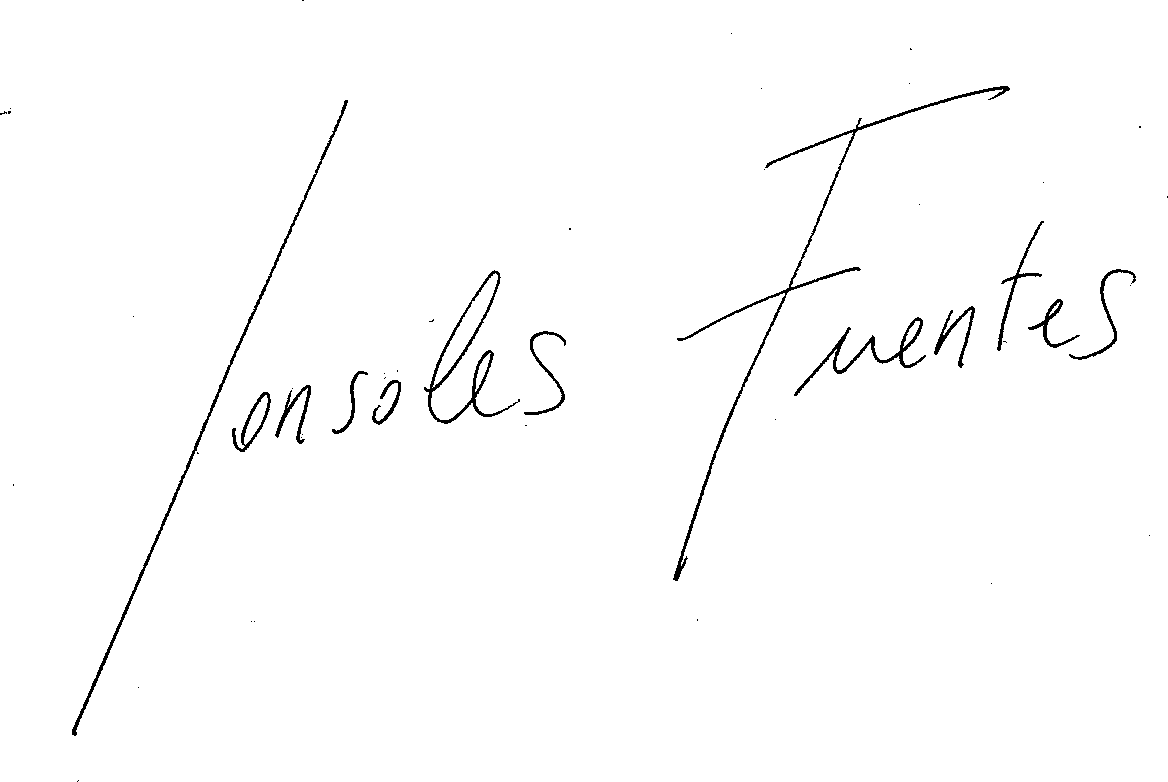 Ionsoles Fuentes